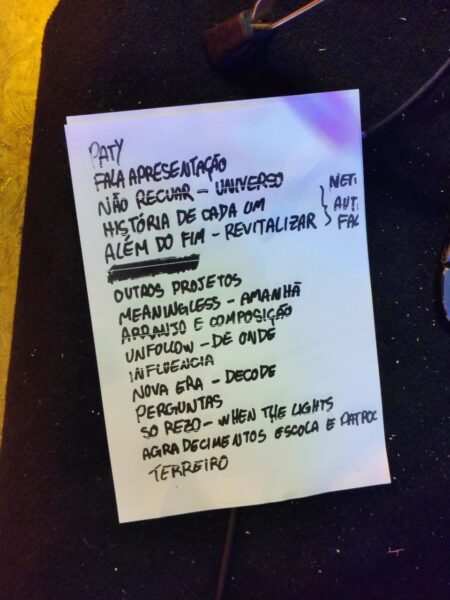 PATY
FALA APRESENTAÇÃO
NÃO RECUAR - UNIVERSO
HISTÓRIA DE CADA UM
ALÉM DO FIM - REVITALIZAR
OUTROS PROJETOS
MEANINGLESS - AMANHÃ
ARRANJO E COMPOSIÇÃO
UNFOLLOW - DE ONDE
INFLUENCIA
NOVA ERA - DECODE
PERGUNTAS
SO REZO - WHEN THE LIGHTS
AGRADECIMENTOS ESCOLA E PATROC
TERREIRO